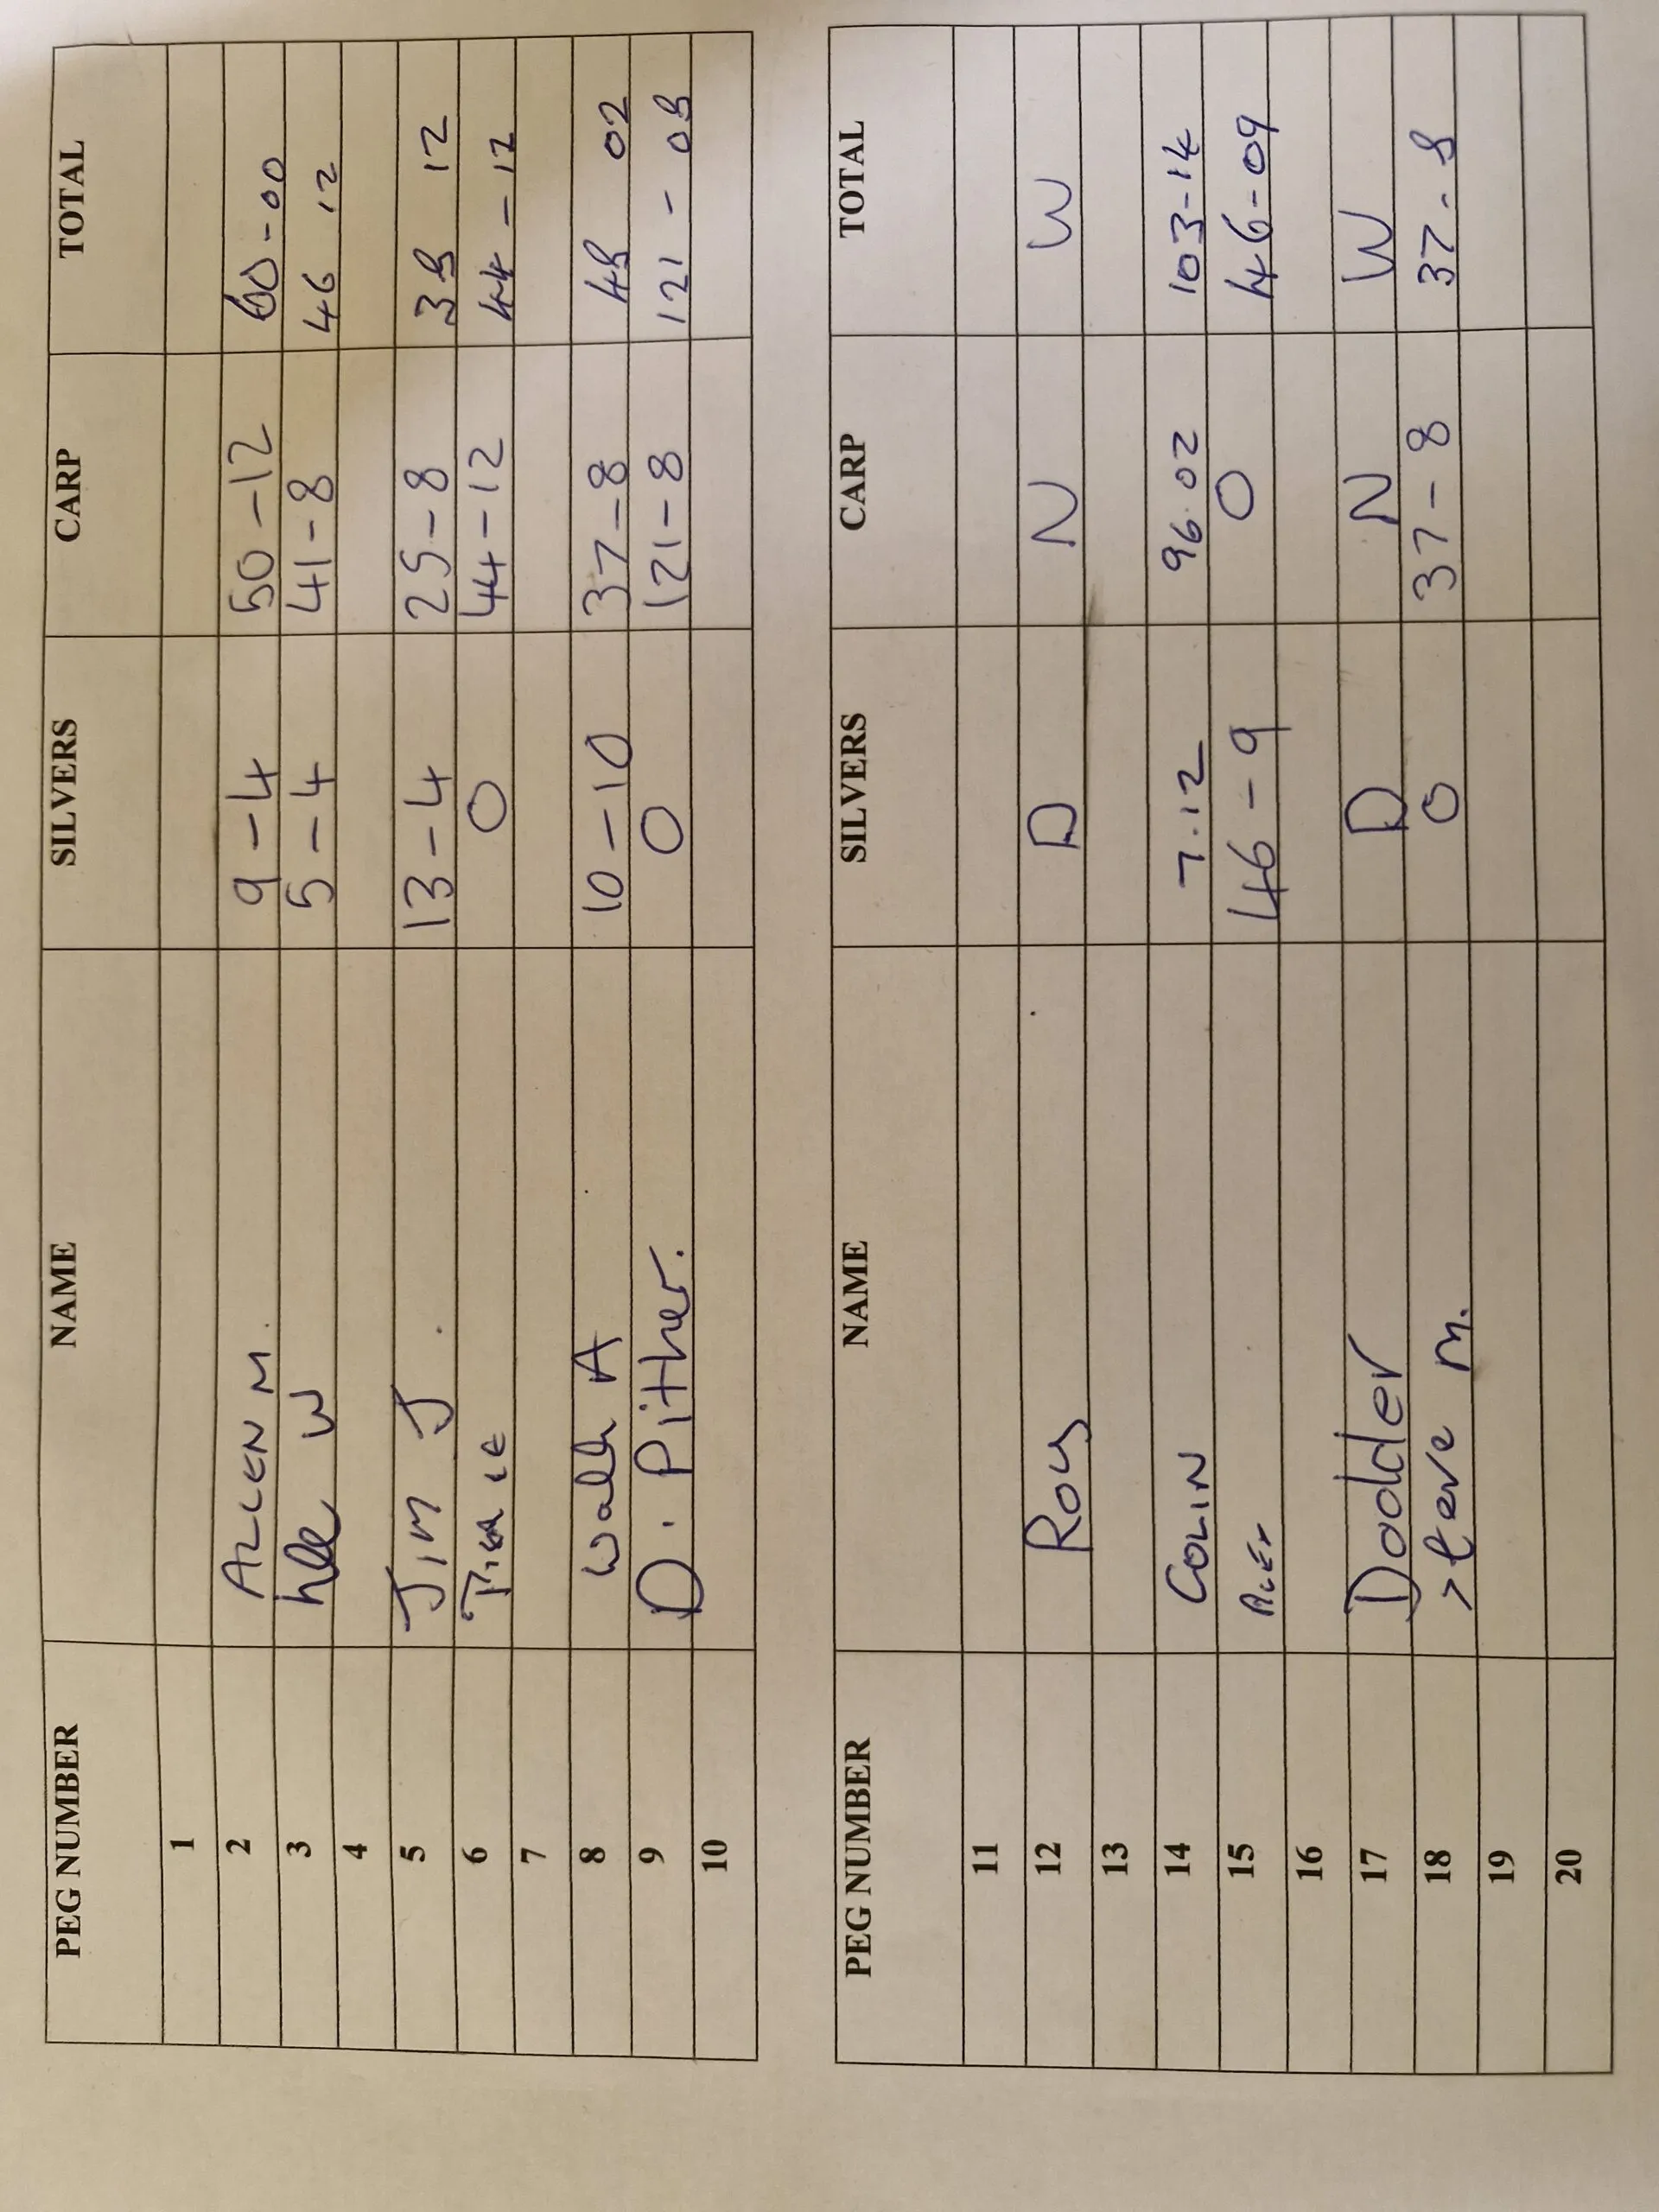 PEG NUMBER NAME SILVERS CARP TOTAL
1
2 ALLEN M. 9-4 50-12 60-00
3 W 5-4 41-8 46.12
4
5 JIM J. 13-4 25-8 38 12
6 0 44-12 44-12
7
8 A 10-10 37-8 48 02
9 D. Pither. 0 121-8 121-08
10
PEG NUMBER NAME SILVERS CARP TOTAL
11
12 Roy D N W
13
14 COLIN 7.12 96.02 103-14
15 46-9 0 46-09
16
17 Dodder D N W
18 Steve M. 0 37-8 37.8
19
20